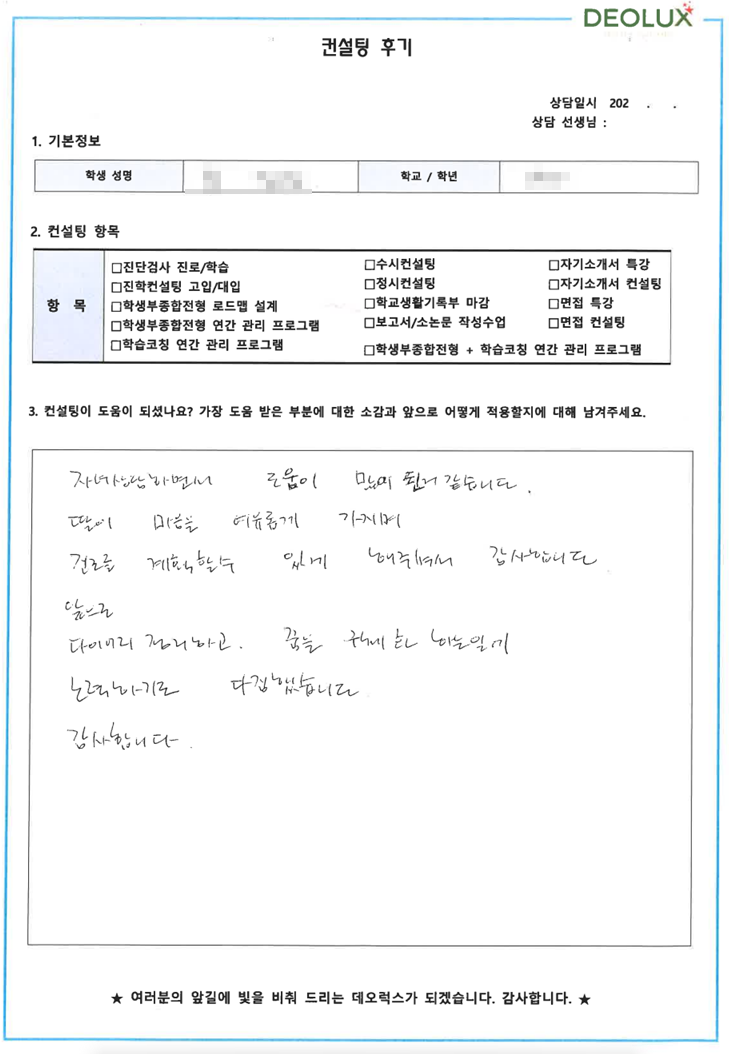 DEOLUX
컨설팅 후기
상담일시 202 . .
상담 선생님 :
1. 기본정보
학생 성명
학교 / 학년
2. 컨설팅 항목
항 목
□진단검사 진로/학습
□진학컨설팅 고입/대입
□학생부종합전형 로드맵 설계
□학생부종합전형 연간 관리 프로그램
□학습코칭 연간 관리 프로그램
□수시컨설팅
□정시컨설팅
□학교생활기록부 마감
□보고서/소논문 작성수업
□학생부종합전형 + 학습코칭 연간 관리 프로그램
□자기소개서 특강
□자기소개서 컨설팅
□면접 특강
□면접 컨설팅
3. 컨설팅이 도움이 되셨나요? 가장 도움 받은 부분에 대한 소감과 앞으로 어떻게 적용할지에 대해 남겨주세요.
자녀상담하면서 도움이 많이 된거 같습니다.
딸이 마음을 여유롭게 가지며
진로를 계획할수 있게 해주셔서 감사합니다
앞으로
다이어리 정리하고. 꿈을 하는일에
노력하기로 다짐했습니다
감사합니다.
★ 여러분의 앞길에 빛을 비춰 드리는 데오럭스가 되겠습니다. 감사합니다. ★